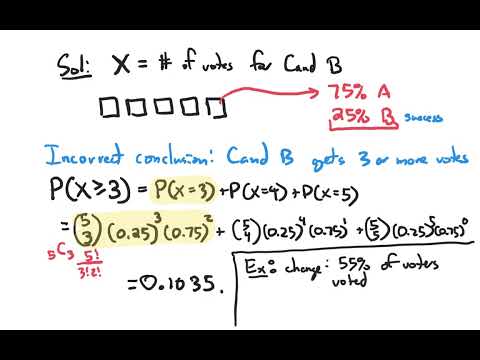 Sol: X = # of votes for Cand B
75% A
25% B success
Incorrect conclusion: Cand B gets 3 or more votes
P(X≥3) = P(X=3) + P(X=4) + P(X=5)
= (5 3) (0.25)^3 (0.75)^2 + (5 4) (0.25)^4 (0.75)^1 + (5 5) (0.25)^5 (0.75)^0
5C3 5!/3!2!
= 0.1035.
Ex: change: 55% of voters
voted